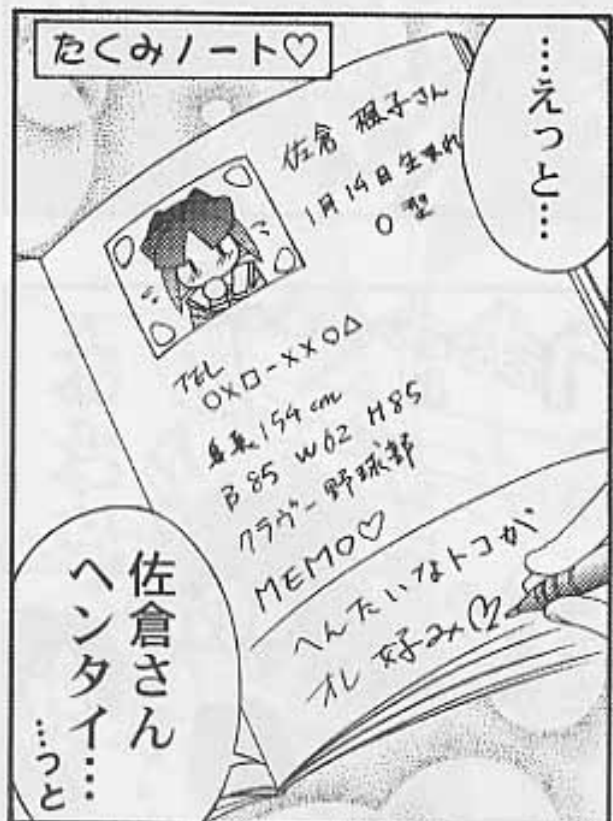 たくみノート♡
…えっと…
佐倉 楓子さん
1月14日生まれ
O型
TEL
○×□-××○△
身長154cm
B85 W62 H85
クラブー野球部
MEMO♡
へんたいなトコが
オレ好み♡
佐倉さん
ヘンタイ…
…っと